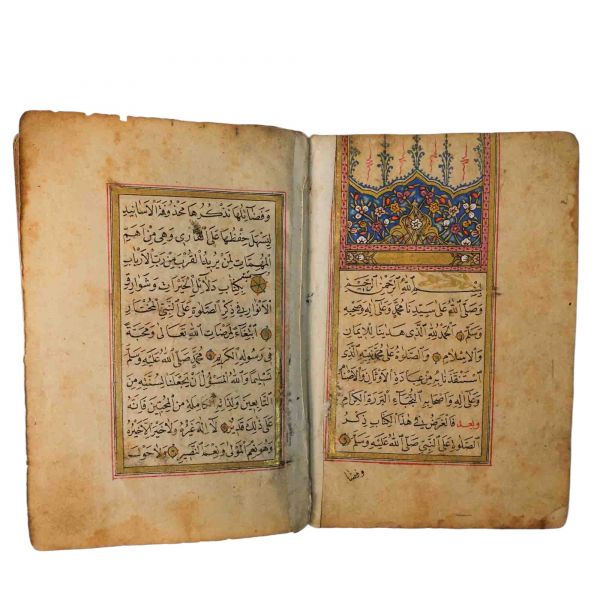 بسم الله الرحمن الرحيم
وصلى الله على سيدنا محمد وعلى اله وصحبه
وسلم الحمد لله الذى هدينا للايمان
والاسلام والصلوة على محمد نبيه الذى
استنقذنا به من عبادة الاوثان والاصنام
وعلى اله واصحابه النجباء البررة الكرام
وبعد فالغرض فى هذا الكتاب ذكر
الصلوة على النبى صلى الله عليه وسلم
وفضا
وفضائلها نذكرها محذوفة الاسانيد
ليسهل حفظها على القارى وهى من اهم
المهمات لمن يريد القرب من رب الارباب
وسميته
بكتاب دلائل الخيرات وشوارق
الانوار فى ذكر الصلوة على النبى المختار
ابتغاء لمرضات الله تعالى ومحبة
فى رسوله الكريم محمد صلى الله عليه وسلم
تسليما والله المسئول ان يجعلنا لسنته من
التابعين ولذاته الكاملة من المحبين فانه
على ذلك قدير لا اله غيره ولا خير الا خيره
وهو نعم المولى ونعم النصير ولا حول